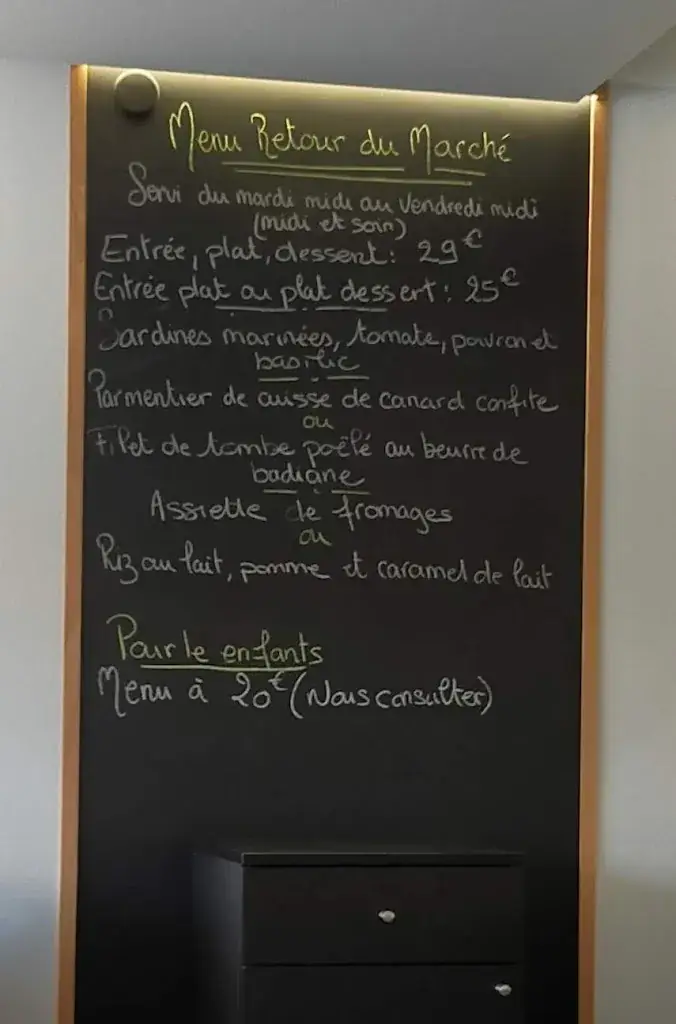 Menu Retour du Marché
Servi du mardi midi au vendredi midi
(midi et soir)
Entrée, plat, dessert: 29€
Entrée plat ou plat dessert: 25€
Sardines marinées, tomate, poivron et
basilic
Parmentier de cuisse de canard confite
ou
Filet de tombe poêlé au beurre de
badiane
Assiette de fromages
ou
Riz au lait, pomme et caramel de lait
Pour le enfants
Menu à 20€ (Nous consulter)